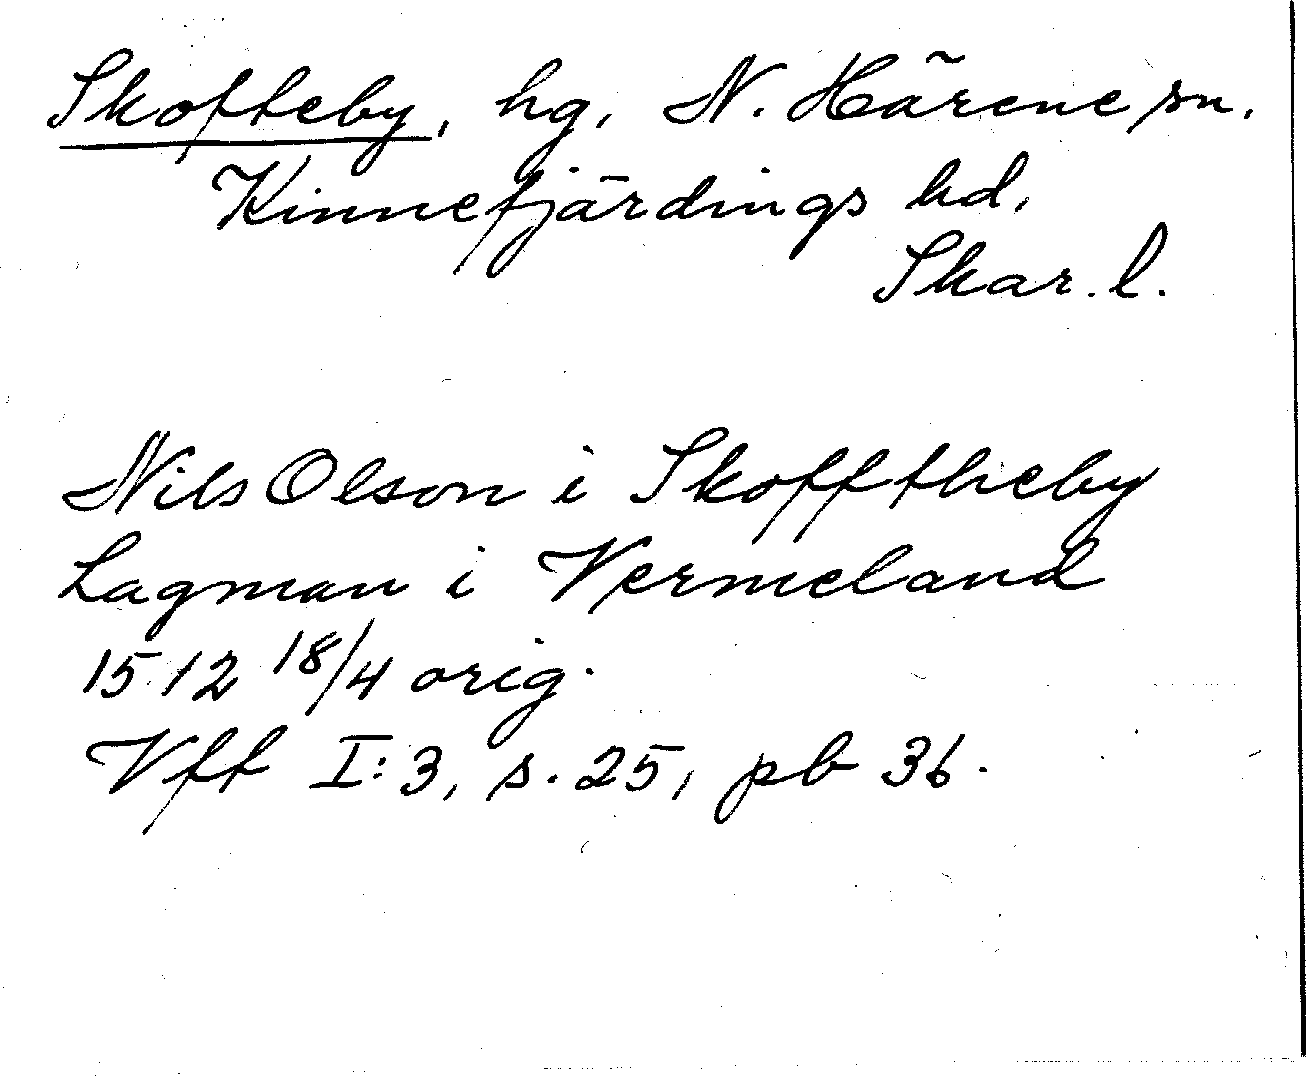 Skofteby, hg, N. Härene sn.
Kinnefjärdings hd,
Skar. l.
Nils Olson i Skofftheby
Lagman i Vermeland
1512 18/4 orig.
Vff I:3, s. 25, pb 36.